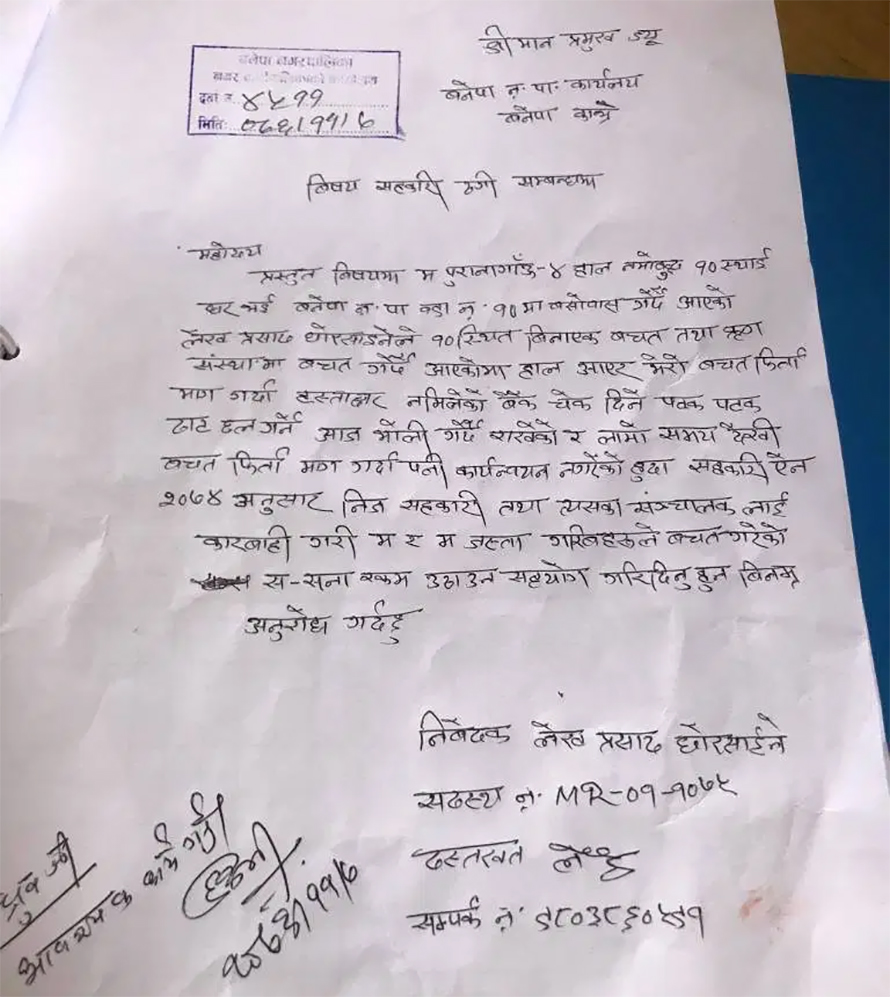 श्रीमान प्रमुख ज्यू
बनेपा न.पा. कार्यालय
बनेपा काभ्रे
बनेपा नगरपालिका
दर्ता नं. ४५११
मिति:
बिषय सहकारी ठगी सम्बन्धमा
महोदय
प्रस्तुत बिषयमा म पुरानागाँउ-४ हाल नमोबुद्ध १० स्थाई
घर भई बनेपा न.पा वडा न. १० मा बसोवास गर्दै आएको
लेख प्रसाद घोरसाईनेले १० स्थित बिनाएक बचत तथा ऋण
संस्थामा बचत गर्दै आएकोमा हाल आएर मेरो बचत फिर्ता
माग गर्दा हस्ताक्षर नमिलेको बैंक चेक दिने पटक पटक
टाट हल गर्ने आज भोली गर्दै राखेको र लामो समय देखी
बचत फिर्ता माग गर्दा पनी कार्यन्वयन नगरेको हुदा सहकारी ऐन
२०७४ अनुसार निज सहकारी तथा त्यसका संञ्चालक लाई
कारबाही गरी म र म जस्ता गरिबहरुले बचत गरेको
स-सना रकम उठाउन सहयोग गरिदिनु हुन बिनम्र
अनुरोध गर्दछु
निबेदक लेख प्रसाद घोरसाईने
सदस्य न. MR-01-१०७५
दस्तखत
सम्पर्क न. ९८०३८६०५५१
आवश्यक कार्य गर्नु